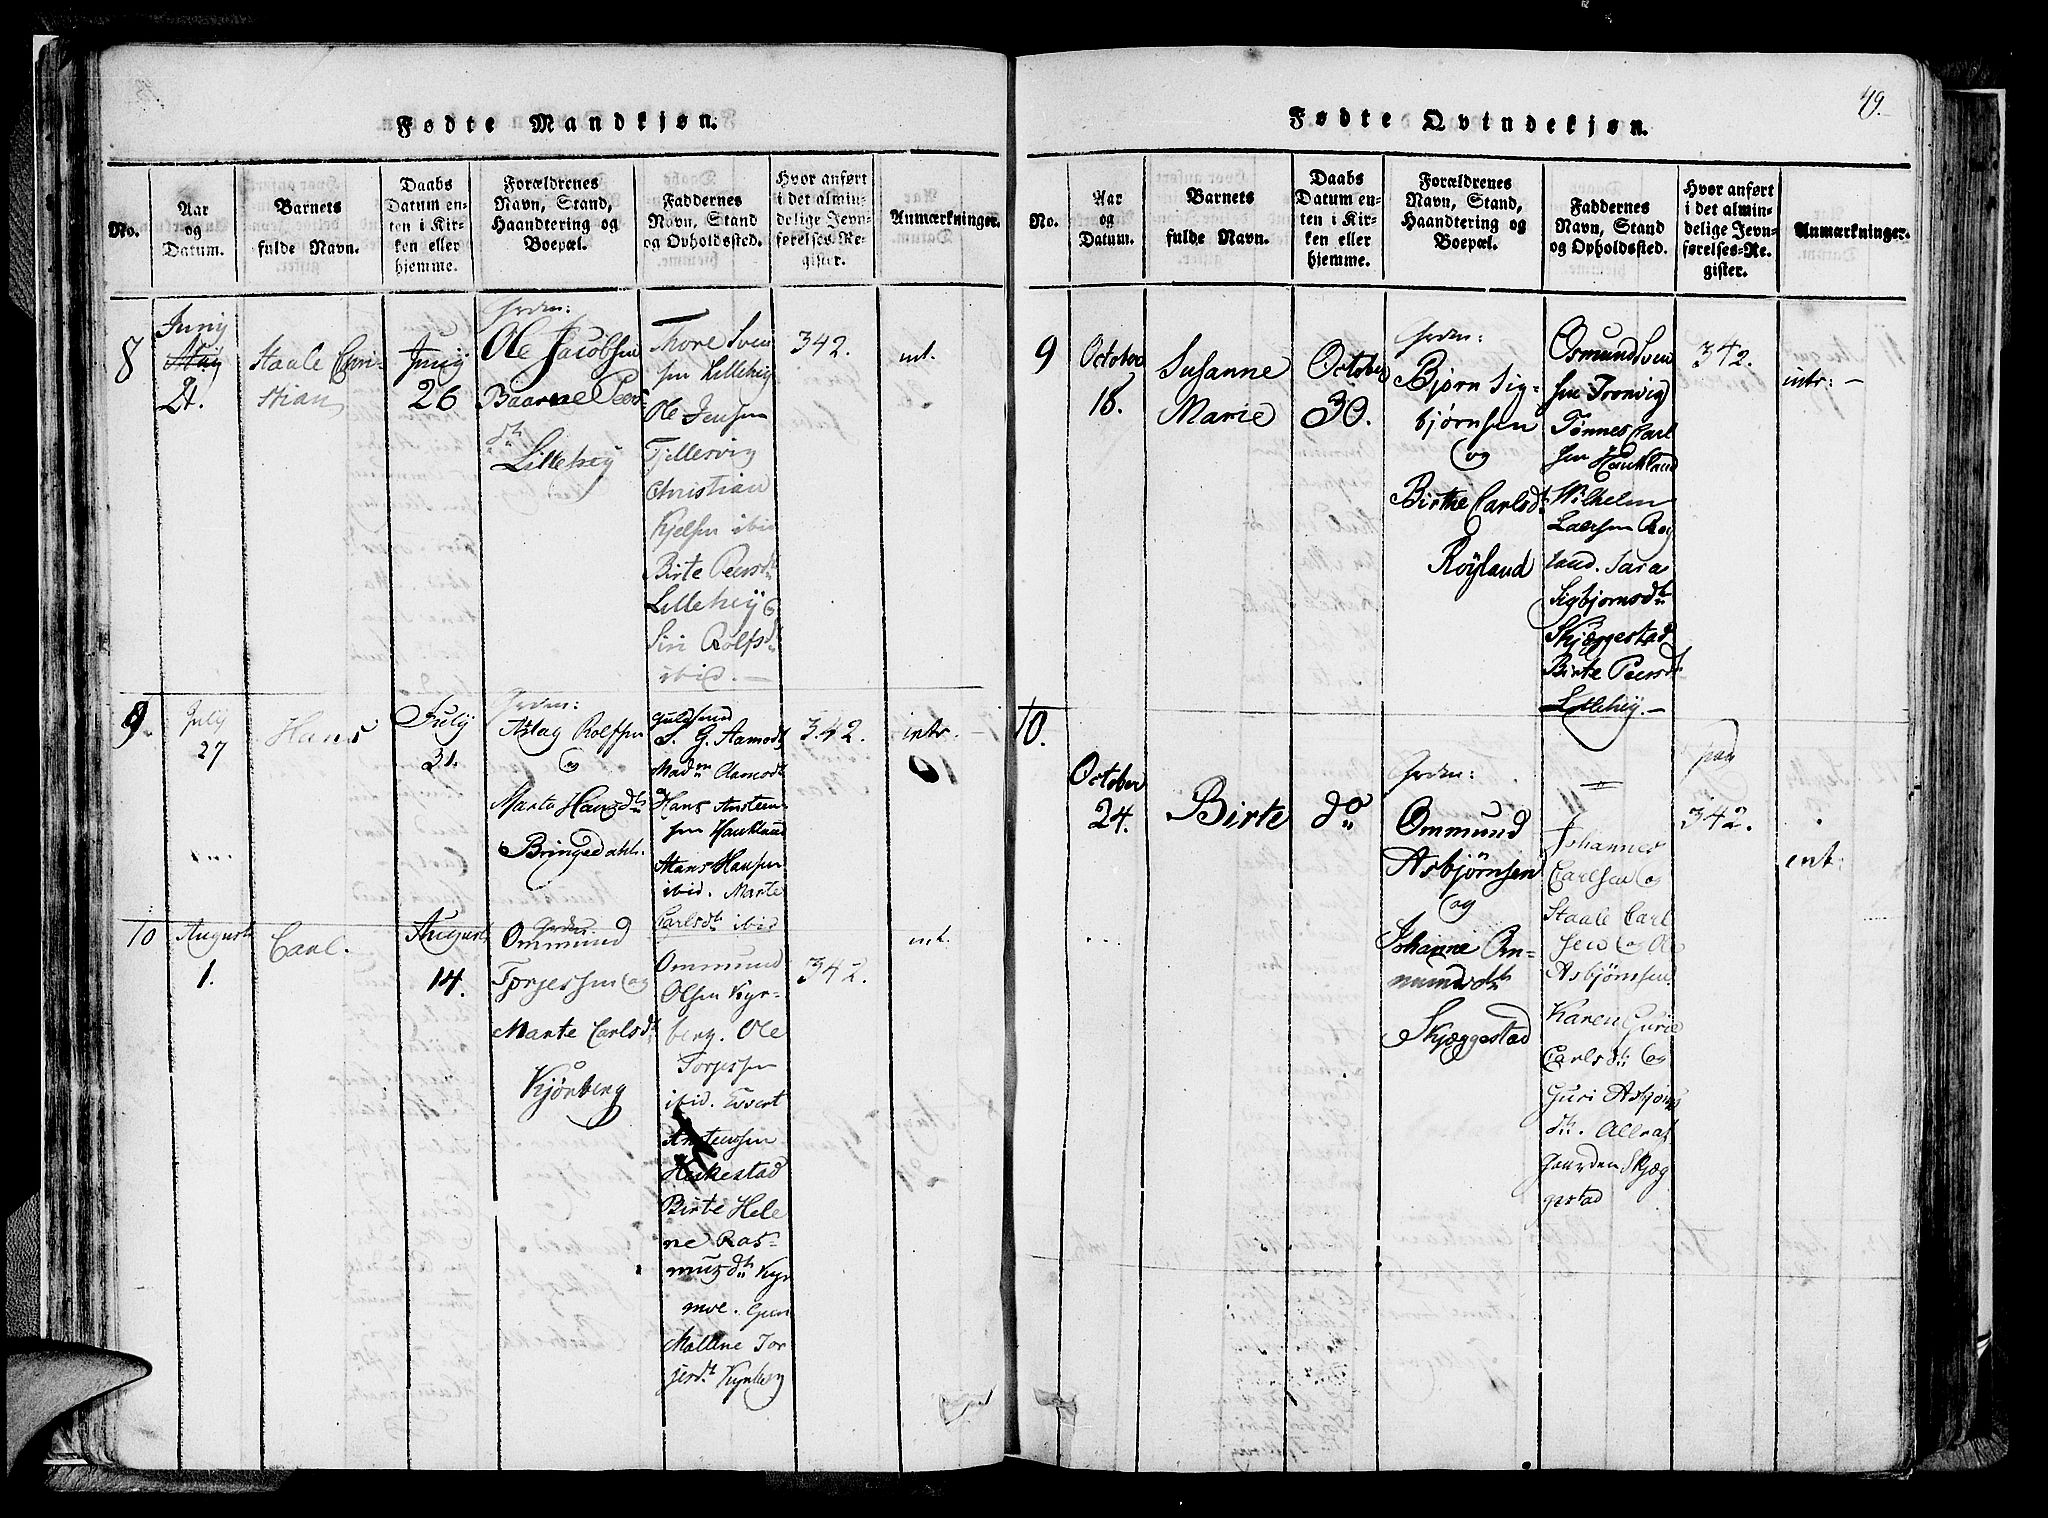 Fødte Mandkjøn.
No.
Aar
og
Datum.
Barnets
fulde Navn.
Daabs
Datum en-
ten i Kir-
ken eller
hjemme.
Forældrenes
Navn, Stand,
Haandtering og
Boepæl.
Faddernes
Navn, Stand
og Opholdssted.
Hvor anført
i det almin-
delige Jevn-
førelses-Re-
gister.
Anmærkninger.
8
Junij
Maij
21.
Staale Chri-
stian
Junij
26
Grden:
Ole Jacobsen
Baarne Peers
dtr
Lillehej
Thore Sven
sen Lillehej
Ole Jensen
Tjillesvig
Christian
Kjelsen ibid
Birte Peersdtr
Lillehej og
Siri Rolfsdtr
ibid.
342.
int.
9.
July
27
Hans
July
31.
Grden:
Aslag Rolfsen
og
Marta Hansdtr
Bringsdahl.
Guldsmed
S. G. Aamodt
Madm Aamodt
Hans Ansteen-
sen Haukland
Hans Hansen
ibid. Marte
Carlsdtr ibid
342.
intr.
10
August
1.
Carl.
August
14.
Grden
Ommund
Torjersen og
Marte Carlsdtr
Kjørberg
Ommund
Olsen Kyr-
berg. Ole
Torjersen
ibid. Evert
Ansteensen
Heskestad
Birte Hele
ne Ras-
musdtr Kyr
moe.
Mallene Tor
jersdtr Kyrberg
342.
int.
Fødte Qvindekjøn.
49.
No.
Aar
og
Datum.
Barnets
fulde Navn.
Daabs
Datum en-
ten i Kir-
ken eller
hjemme.
Forældrenes
Navn, Stand,
Haandtering og
Boepæl.
Faddernes
Navn, Stand
og Opholdssted.
Hvor anført
i det almin-
delige Jevn-
førelses-Re-
gister.
Anmærkninger.
9
October
18.
Susanne
Marie
October
30.
Grden:
Bjørn Sig-
bjørnsen
og
Birthe Carlsdtr
Røyland
Osmund Sven
sen Tronvig
Tønnes Carl
sen Haukland
Wilhelm
Laersen Røy
land. Sara
Sigbjornsdtr
Skjæggestad
Birte Peersdtr
Lillehej.
342.
intr:
10.
October
24.
Birte
do
Grden:
Ommund
Asbjørnsen
og
Johanne Om-
mundsdtr
Skjæggestad
Johannes
Carlsen og
Staale Carl
sen og Ole
Asbjørnsen
Karen Gurie
Carlsdtr og
Guri Asbjørns
dtr. Alle af
Gaarden Skjæg
gestad
pag
342.
int: